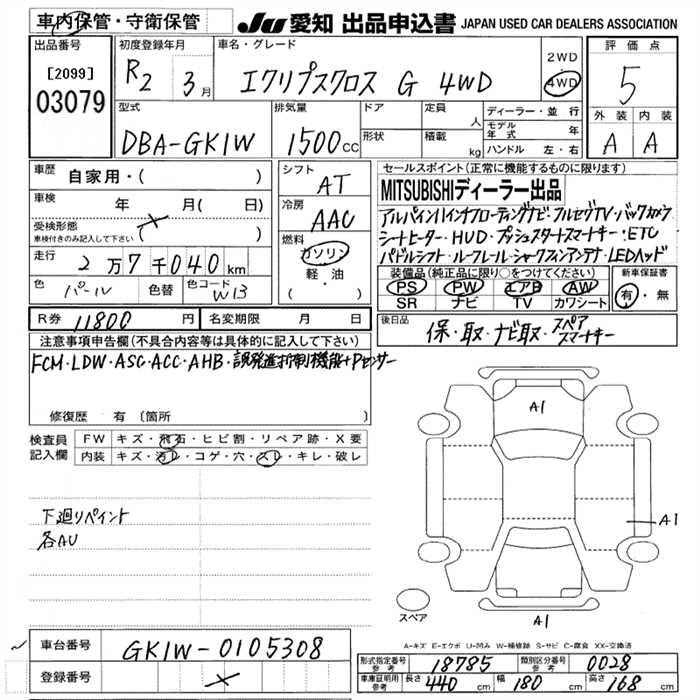 車内保管・守衛保管
JU 愛知 出品申込書 JAPAN USED CAR DEALERS ASSOCIATION
出品番号
[2099]
03079
初度登録年月
R2 3月
車名・グレード
エクリプスクロス G 4WD
2WD
4WD
評価点
5
外装 内装
A A
型式
DBA-GK1W
排気量
1500cc
ドア
形状
定員 人
積載 kg
ディーラー・並行
モデル年式 年
ハンドル 左・右
車歴
自家用・( )
車検 年 月( 日)
受検形態
車検付きのみ記入して下さい ( )
走行 2万7千040km
色 パール 色替 色コード W13
シフト
AT
冷房
AAC
燃料
ガソリン
軽・油
( )
セールスポイント(正常に機能するものに限ります)
MITSUBISHIディーラー出品
アルパイン11インチフローティングナビ・フルセグTV・バックカメラ
シートヒーター・HUD・プッシュスタートスマートキー・ETC
パドルシフト・ルーフレール・シャークフィンアンテナ・LEDヘッド
装備品(純正品に限り○をつけてください)
PS PW エアB AW
SR ナビ TV カワシート
新車保証書
有・無
R券 11800円
名変期限 月 日
後日品
保・取・ナビ取・スペア
スマートキー
注意事項申告欄(不具合内容等は具体的に記入して下さい)
FCM・LDW・ASC・ACC・AHB・誤発進抑制機能+Pセンサー
修復歴 有 〔箇所 〕
検査員
記入欄
FW キズ・飛石・ヒビ割・リペア跡・X要
内装 キズ・汚レ・コゲ・穴・スレ・キレ・破レ
下廻りペイント
各AU
A1
A1
A1
スペア
A-キズ E-エクボ U-凹み W-補修跡 S-サビ C-腐食 XX-交換済
車台番号 GK1W-0105308
登録番号
型式指定番号 参考 18785
類別区分番号 参考 0028
車庫証明用 参考 長さ 440cm 幅 180cm 高さ 168cm